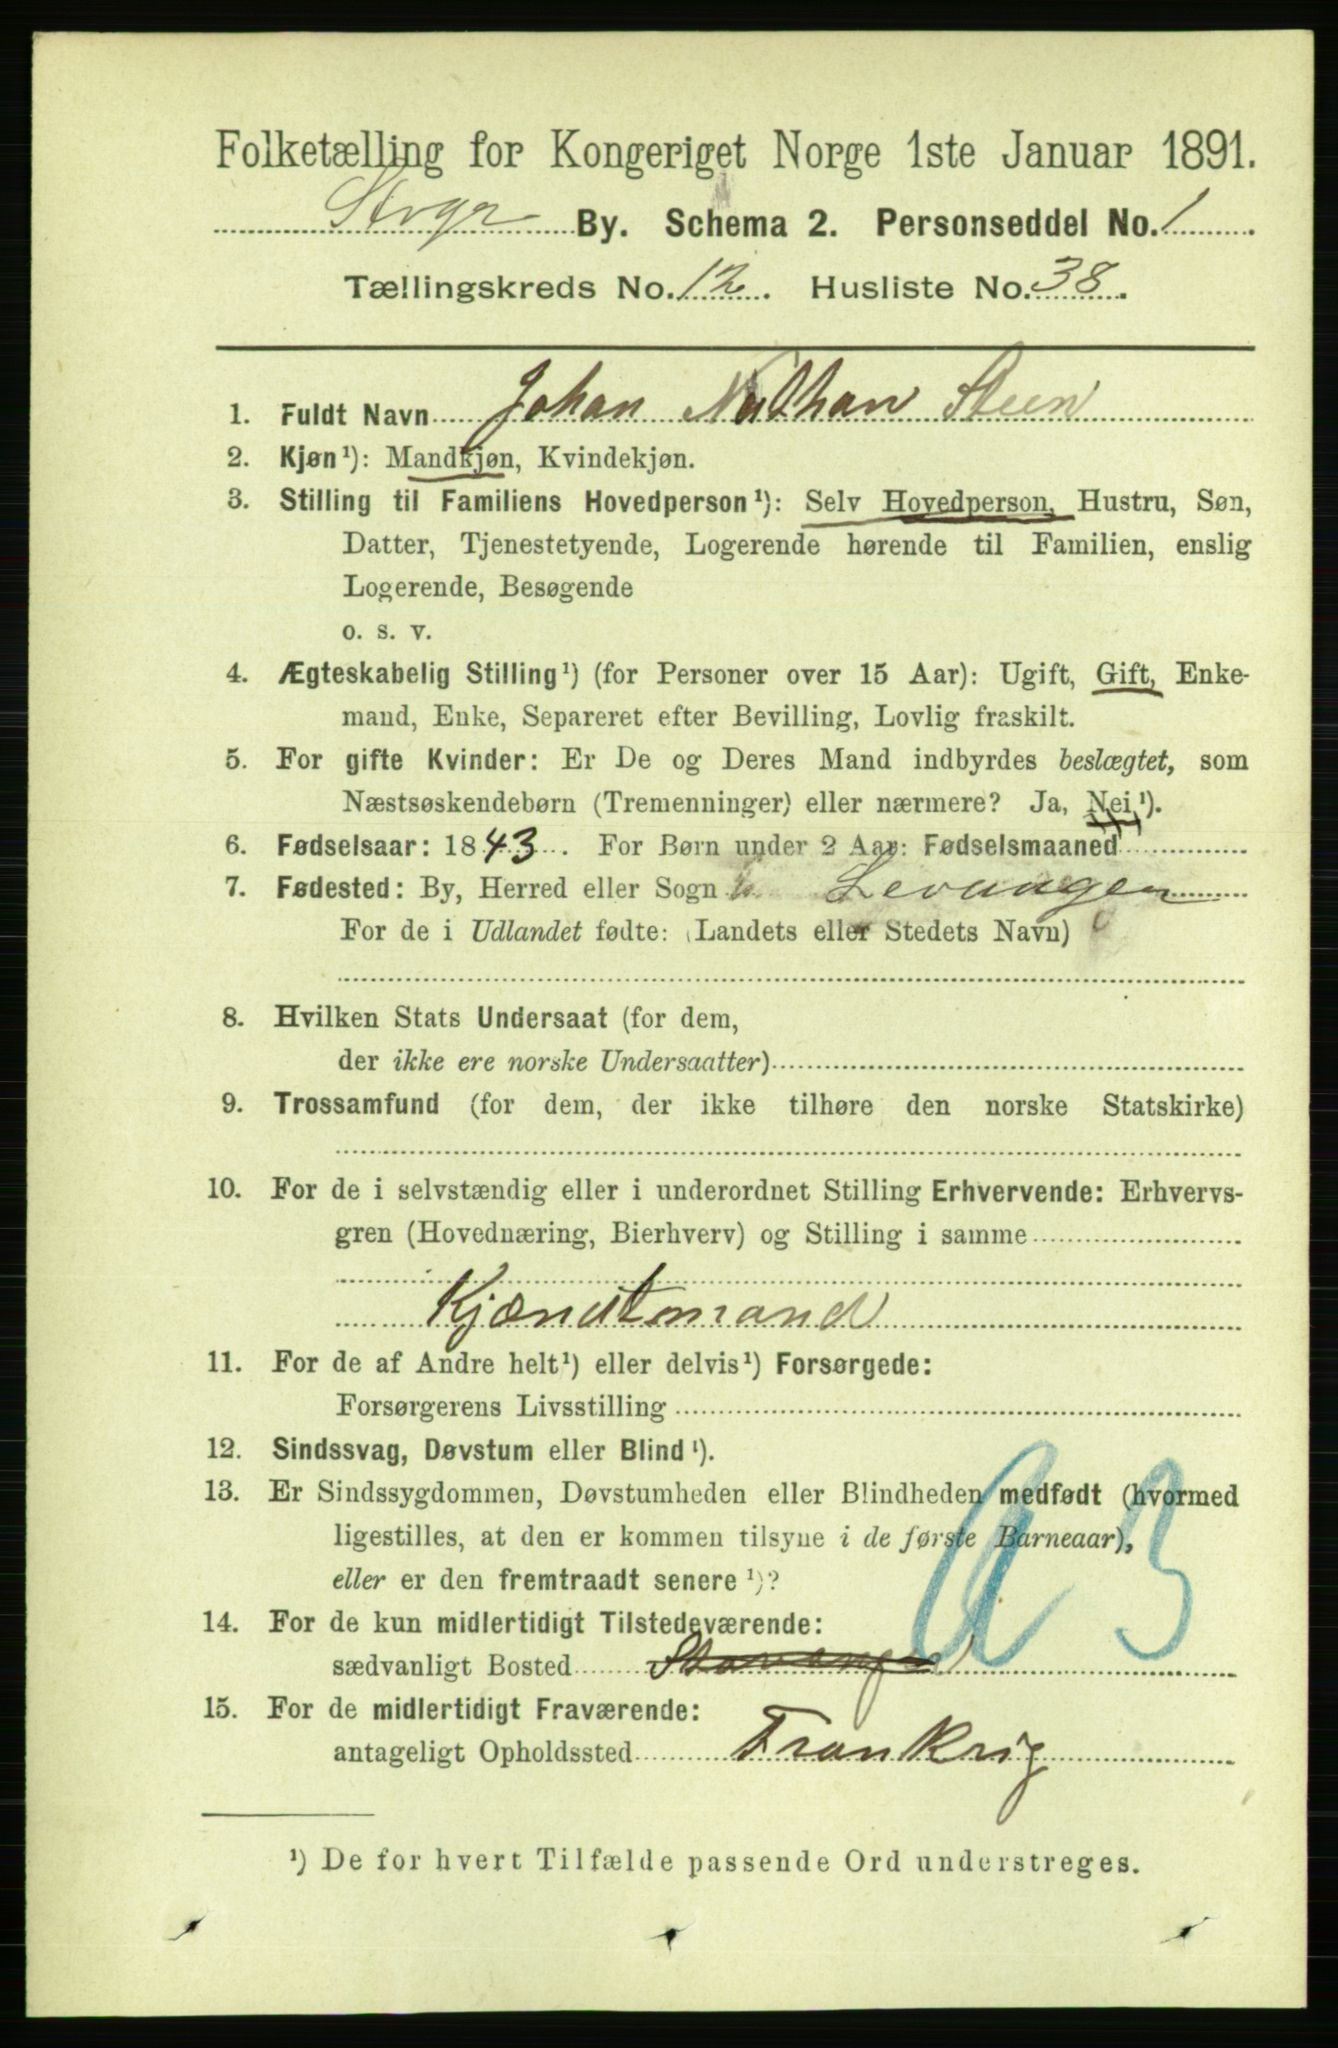 Folketælling for Kongeriget Norge 1ste Januar 1891.
Stvgr By. Schema 2. Personseddel No. 1
Tællingskreds No. 12. Husliste No. 38.
1. Fuldt Navn Johan Nathan Steen
2. Kjøn¹): Mandkjøn, Kvindekjøn.
3. Stilling til Familiens Hovedperson¹): Selv Hovedperson, Hustru, Søn,
Datter, Tjenestetyende, Logerende hørende til Familien, enslig
Logerende, Besøgende
o. s. v.
4. Ægteskabelig Stilling¹) (for Personer over 15 Aar): Ugift, Gift, Enke-
mand, Enke, Separeret efter Bevilling, Lovlig fraskilt.
5. For gifte Kvinder: Er De og Deres Mand indbyrdes beslægtet, som
Næstsøskendebørn (Tremenninger) eller nærmere? Ja, Nei¹).
6. Fødselsaar: 1843. For Børn under 2 Aar: Fødselsmaaned
7. Fødested: By, Herred eller Sogn Levanger
For de i Udlandet fødte: (Landets eller Stedets Navn)
8. Hvilken Stats Undersaat (for dem,
der ikke ere norske Undersaatter)
9. Trossamfund (for dem, der ikke tilhøre den norske Statskirke)
10. For de i selvstændig eller i underordnet Stilling Erhvervende: Erhvervs-
gren (Hovednæring, Bierhverv) og Stilling i samme
Kjændtmand
11. For de af Andre helt¹) eller delvis¹) Forsørgede:
Forsørgerens Livsstilling
12. Sindssvag, Døvstum eller Blind¹).
13. Er Sindssygdommen, Døvstumheden eller Blindheden medfødt (hvormed
ligestilles, at den er kommen tilsyne i de første Barneaar),
eller er den fremtraadt senere¹)?
a 3
14. For de kun midlertidigt Tilstedeværende:
sædvanligt Bosted Stavanger
15. For de midlertidigt Fraværende:
antageligt Opholdssted Frankrig
¹) De for hvert Tilfælde passende Ord understreges.